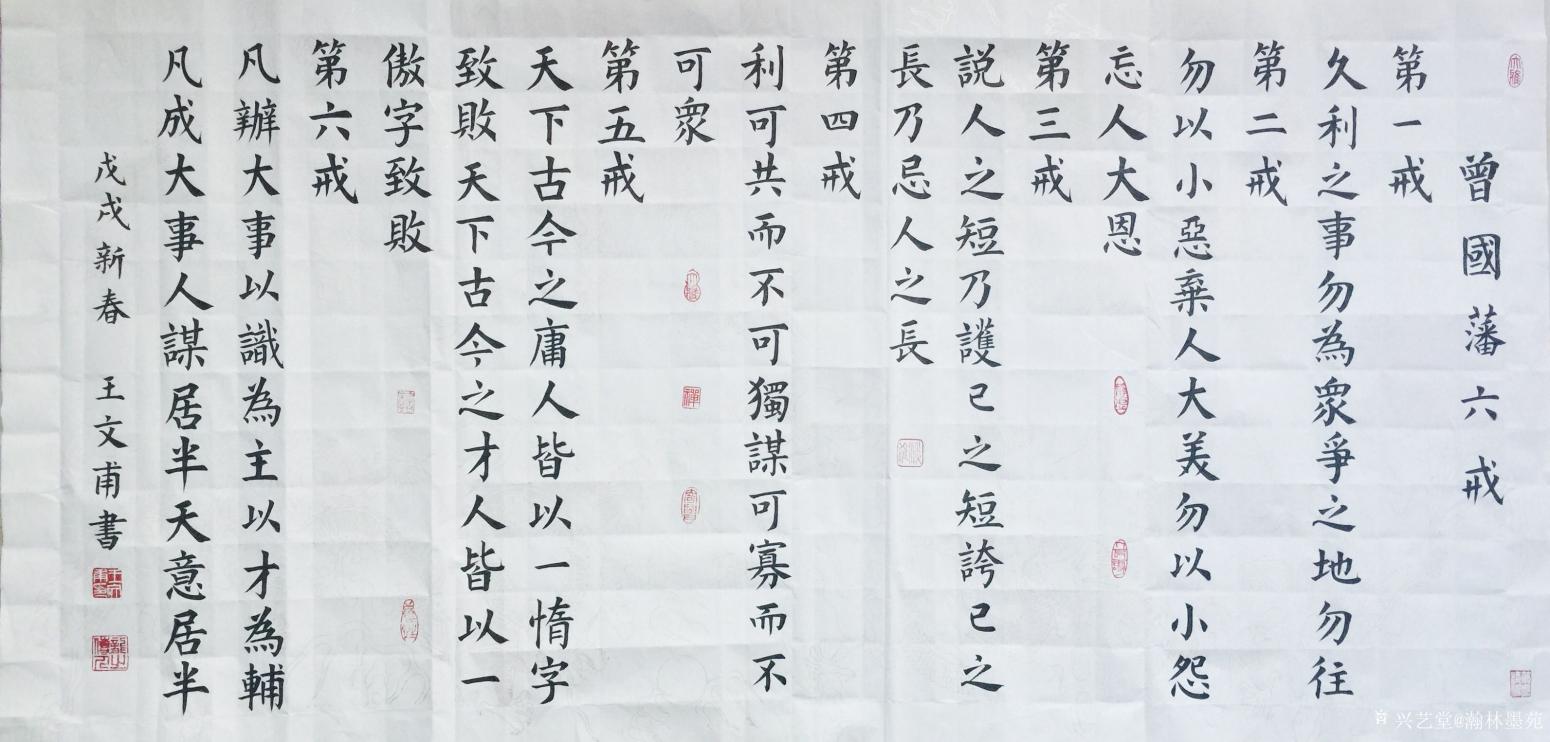 曾國藩六戒
第一戒
久利之事勿為衆爭之地勿往
第二戒
勿以小惡棄人大美勿以小怨
忘人大恩
第三戒
説人之短乃護已之短誇已之
長乃忌人之長
第四戒
利可共而不可獨謀可寡而不
可衆
第五戒
天下古今之庸人皆以一惰字
致敗天下古今之才人皆以一
傲字致敗
第六戒
凡辦大事以識為主以才為輔
凡成大事人謀居半天意居半
戊戌新春 王文甫書
兴艺堂@瀚林墨苑